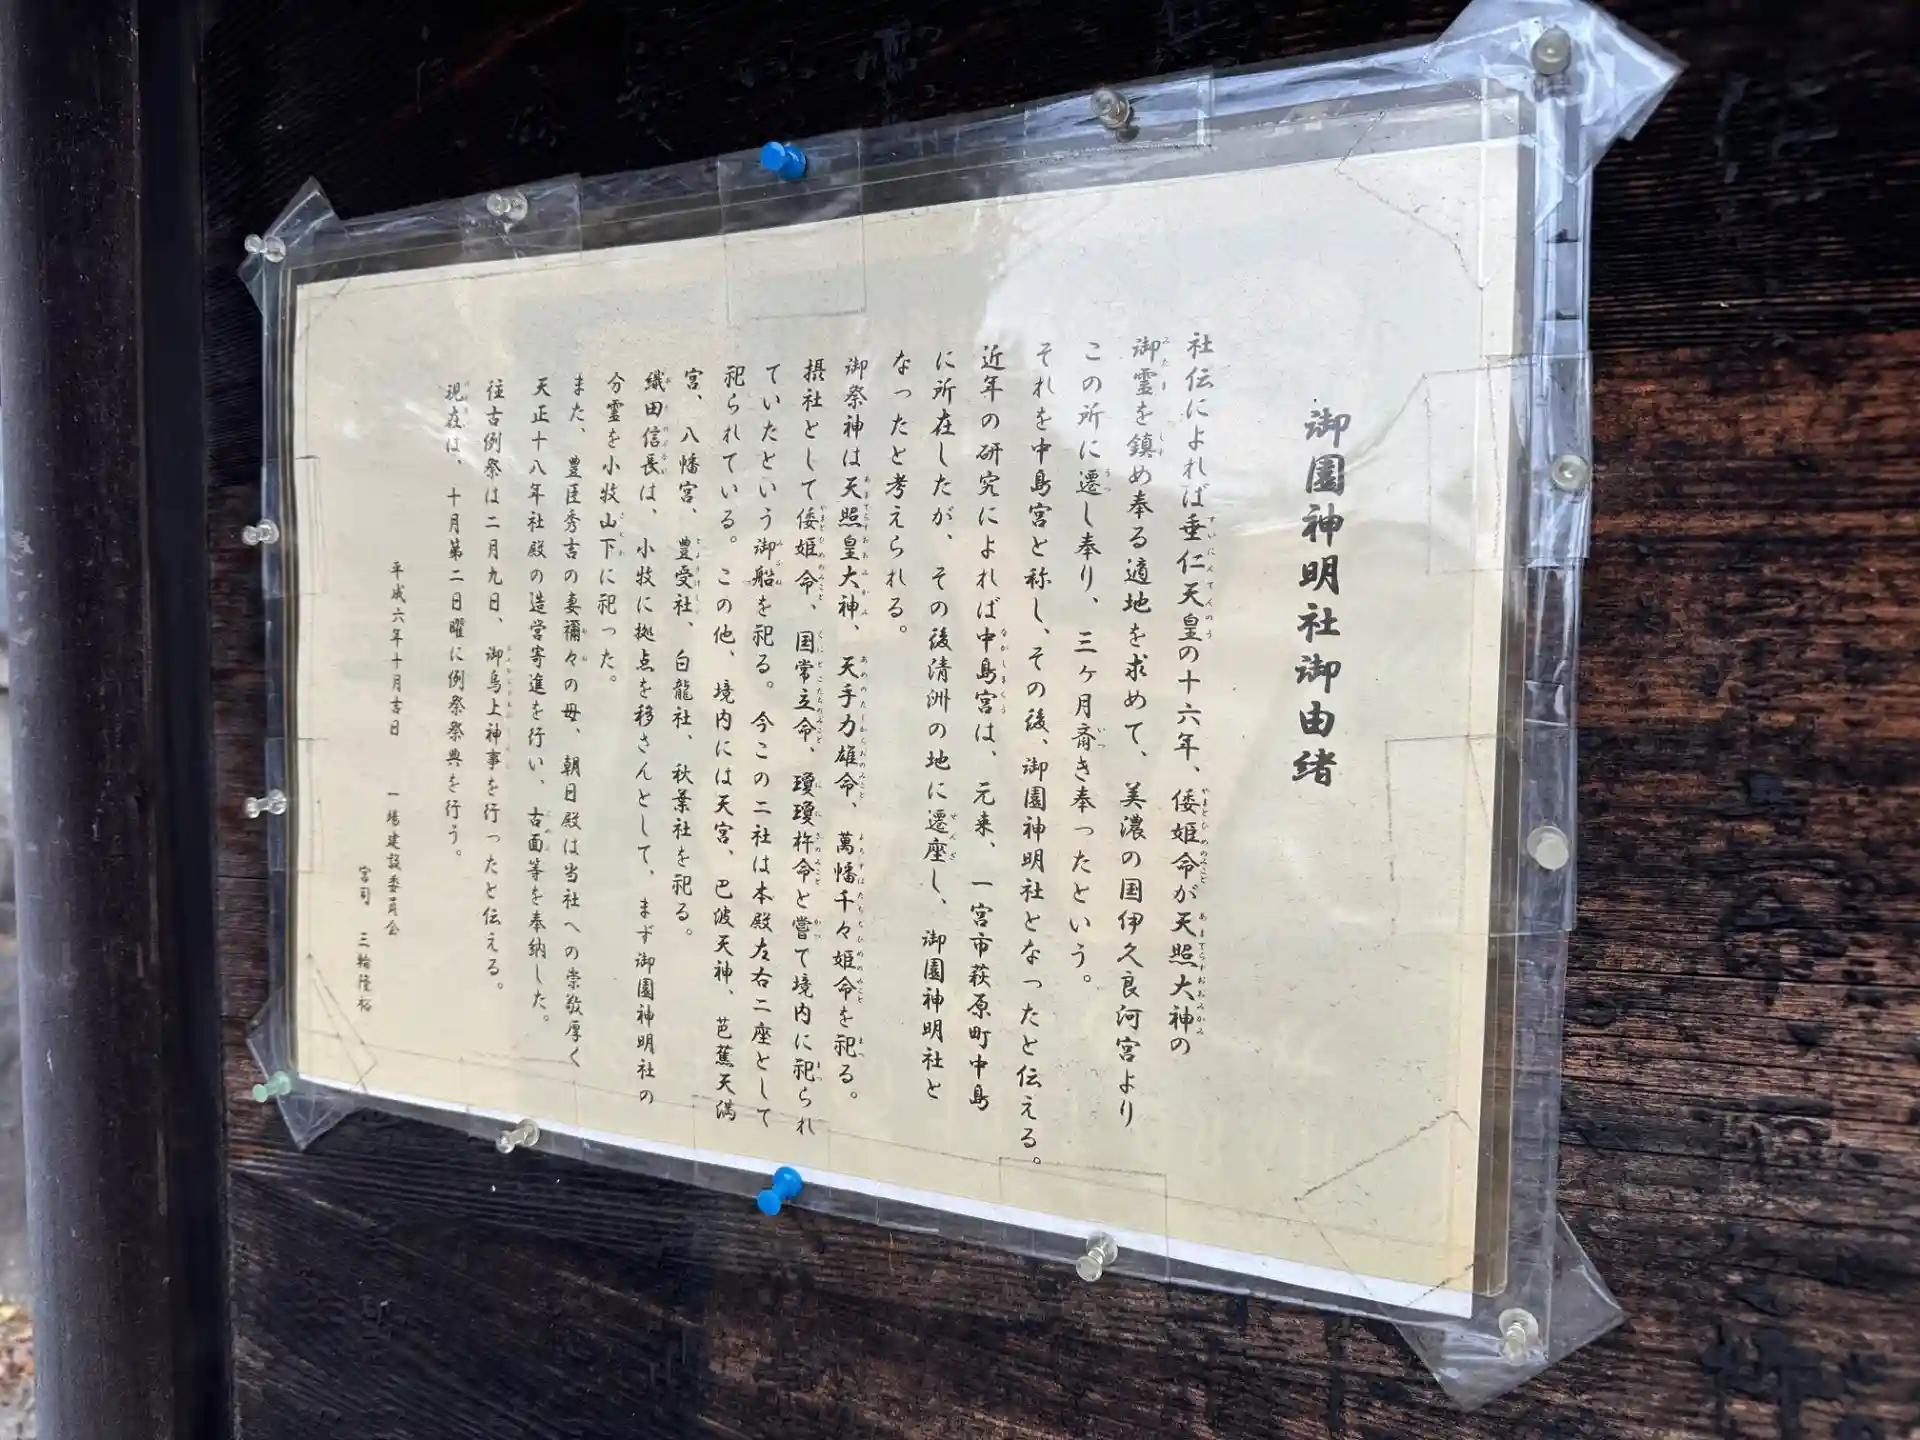 御園神明社御由緒
社伝によれば垂仁天皇の十六年、倭姫命が天照大神の
御霊を鎮め奉る適地を求めて、美濃の国伊久良河宮より
この所に遷し奉り、三ヶ月斎き奉ったという。
それを中島宮と称し、その後、御園神明社となったと伝える。
近年の研究によれば中島宮は、元来、一宮市萩原町中島
に所在したが、その後清洲の地に遷座し、御園神明社と
なったと考えられる。
御祭神は天照皇大神、天手力雄命、萬幡千々姫命を祀る。
摂社として倭姫命、国常立命、瓊瓊杵命と嘗て境内に祀られ
ていたという御船を祀る。今この二社は本殿左右二座として
祀られている。この他、境内には天宮、巴波天神、芭蕉天満
宮、八幡宮、豊受社、白龍社、秋葉社を祀る。
織田信長は、小牧に拠点を移さんとして、まず御園神明社の
分霊を小牧山下に祀った。
また、豊臣秀吉の妻禰々の母、朝日殿は当社への崇敬厚く
天正十八年社殿の造営寄進を行い、古面等を奉納した。
往古例祭は二月九日、御烏上神事を行ったと伝える。
現在は、十月第二日曜に例祭祭典を行う。
平成六年十月吉日 一場建設委員会
宮司 三輪隆裕